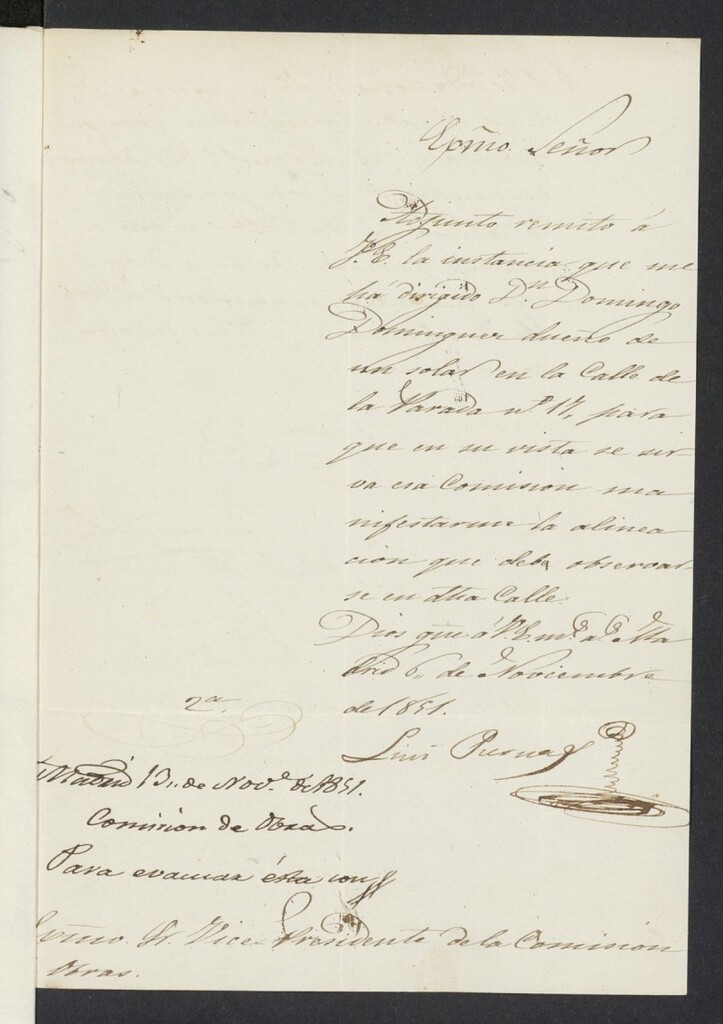 Exmo. Señor
Adjunto remito á
V.E. la instancia que me
há dirigido Dn. Domingo
Dominguez dueño de
un solar en la Calle de
la Parada nº 17, para
que en su vista se sir
va esa Comision ma
nifestarme la alinea
cion que deba observar
se en dha Calle.
Dios gue á V.E. ms. as. Ma
drid 6, de Noviembre
de 1851.
Luis Piernas
2ª
Madrid 13,, de Nove. de 1851.
Comision de Obras.
Para evacuar ésta
Exmo. Sr. Vice-Presidente de la Comision
Obras.